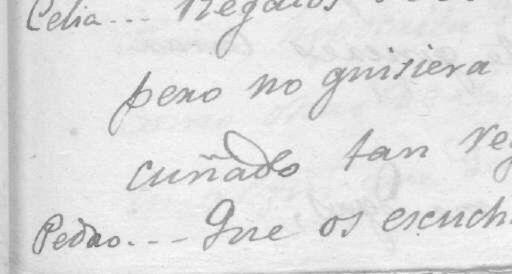 Celia... Regalos
pero no quisiera
cuñado tan reg
Pedro... Que os escuch